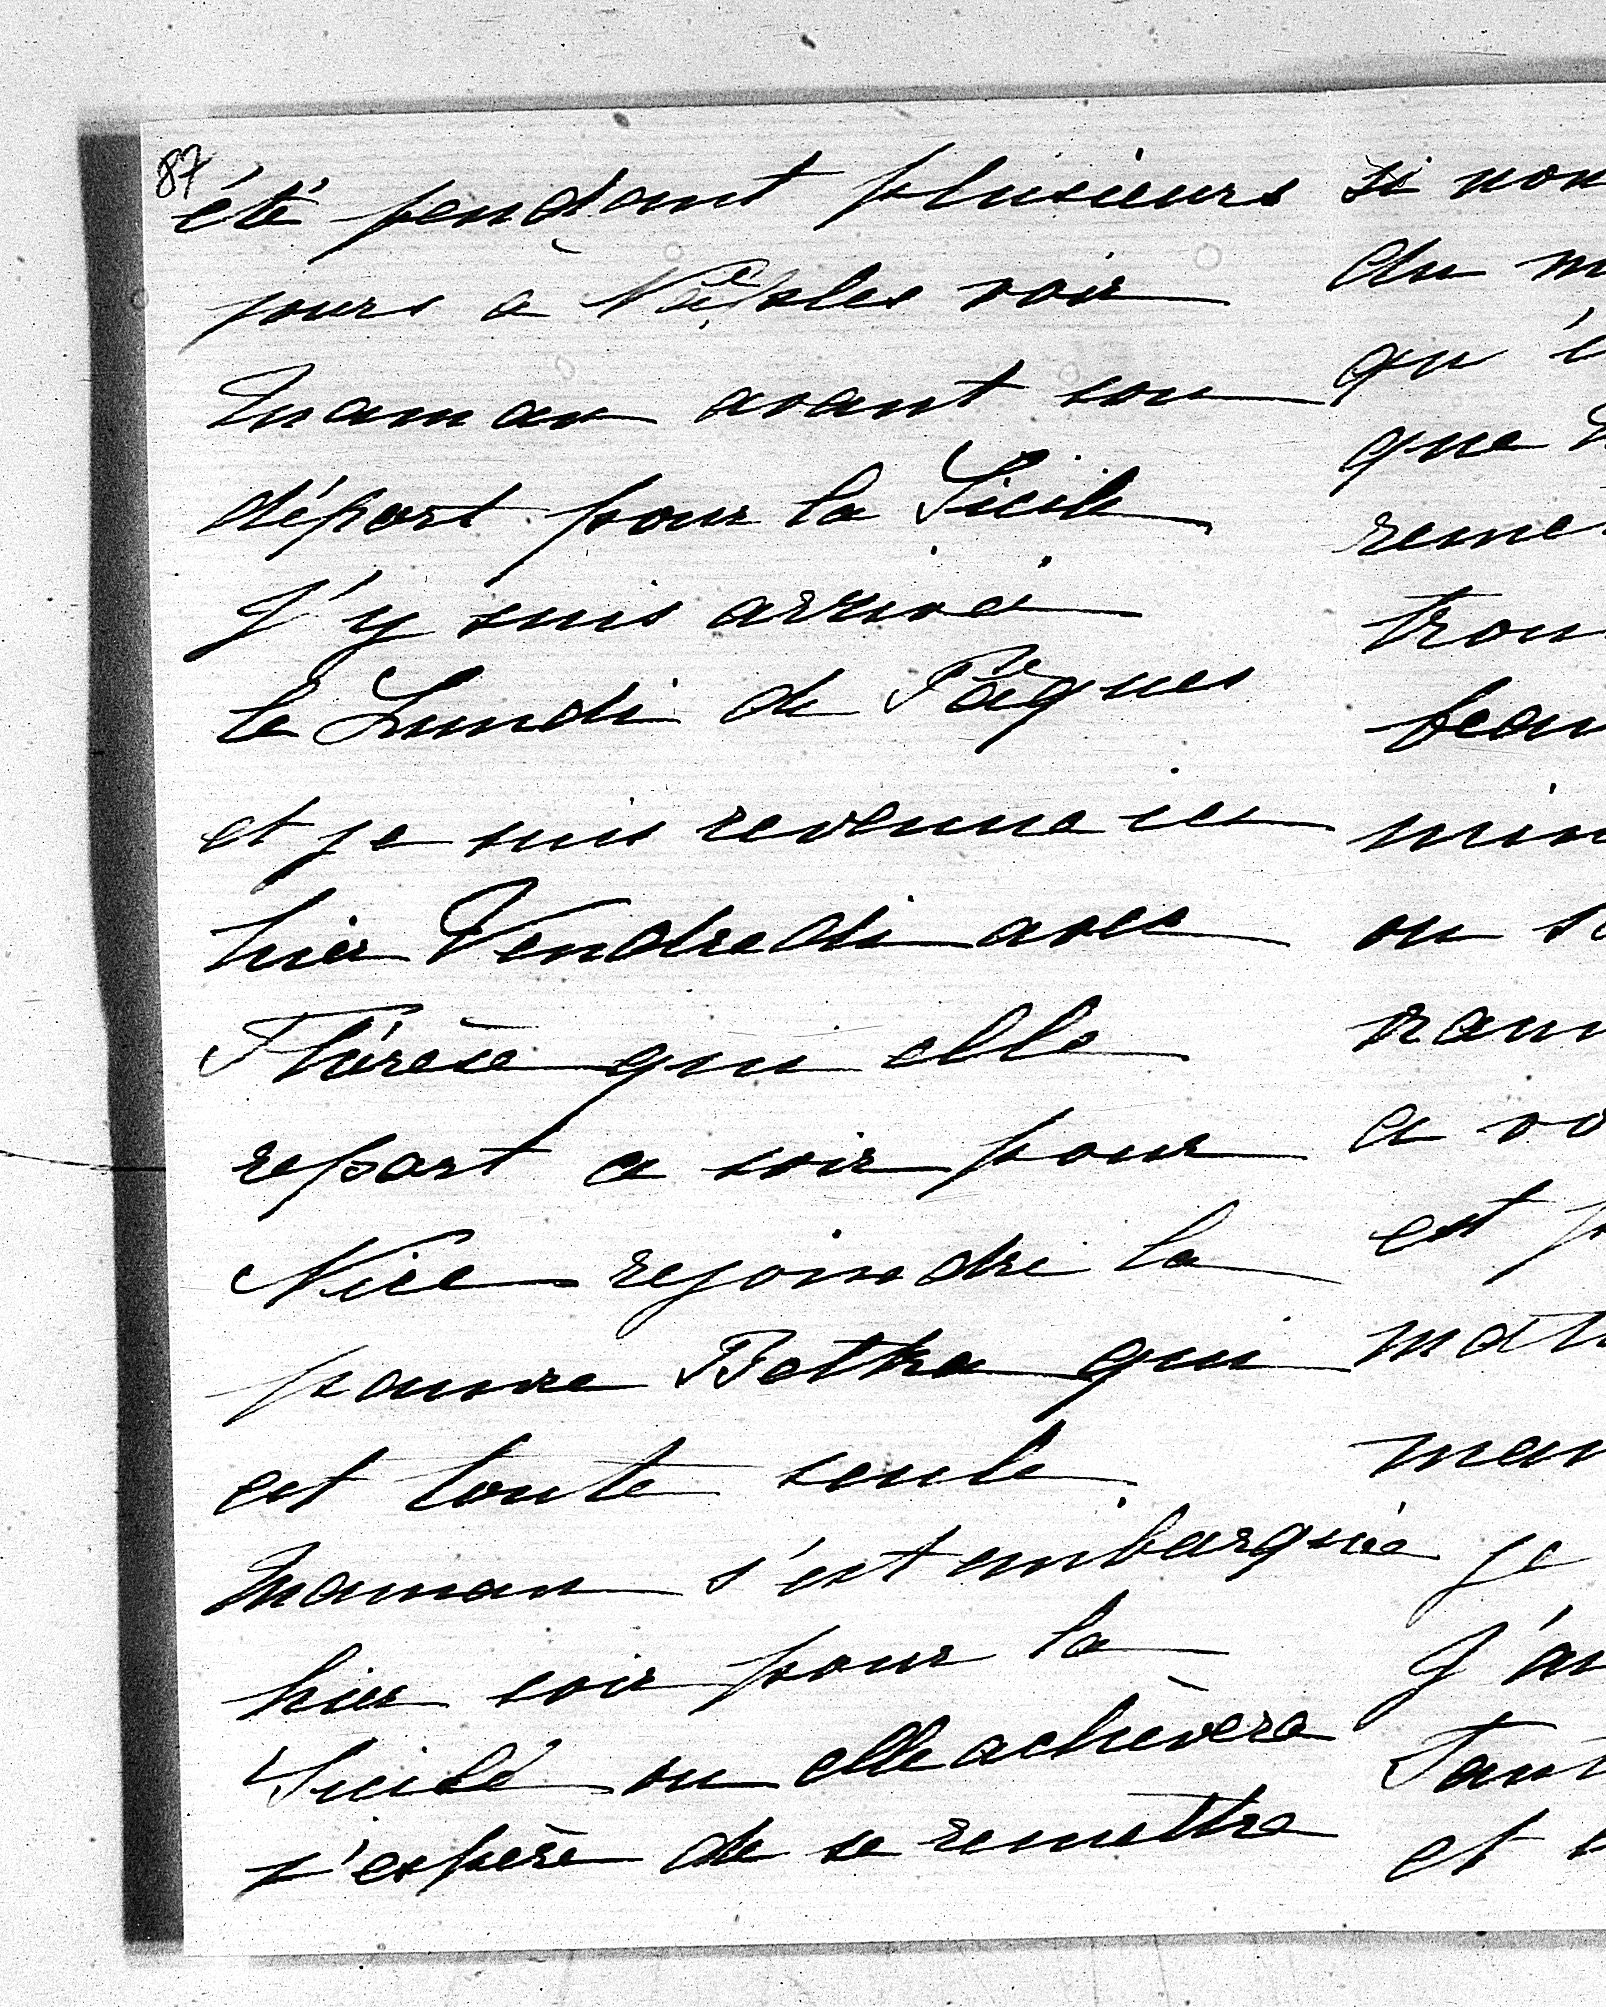 87
été pendant plusieurs
jours à Naples voir
Maman avant son
départ pour la Sicile
J'y suis arrivé
le Lundi de Pâques
et je suis revenue ici
hier Vendredi avec
Thérèse qui elle
repart ce soir pour
Nice rejoindre la
pauvre Betka qui
est toute seule
Maman s'est embarquée
hier soir pour la
Sicile ou elle achèvera
j'espère de se remettre
si non
du
qu'
que
trou
ou
a vo
est
je
J'ai
Tant
et